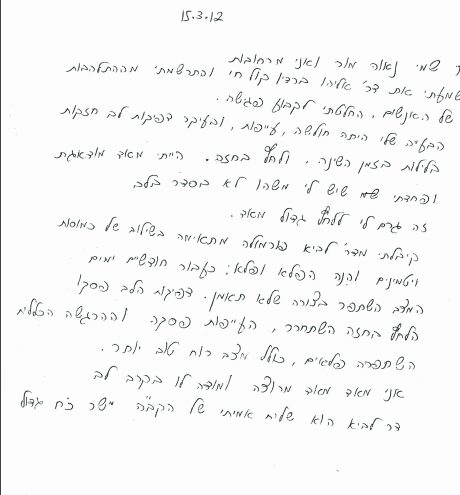 15.3.12
שמי נאור מור ואני מרחובות
שמעתי את דר' אליהו ברדיו קול חי והתרשמתי מההתלהבות
של האנשים, החלטתי לקבוע פגישה.
הבעיה שלי היתה חולשה, עייפות, ובעיקר דפיקות לב חזקות
בלילות בזמן השינה, ולחץ בחזה. הייתי מאד מודאגת
ופחדתי שיש לי משהו לא בסדר בלב,
זה גרם לי ללחץ גדול מאד.
קיבלתי מדר' לביא פורמולה מתאימה בשילוב של כמוסות
ויטמינים והנה הפלא ופלא: כעבור חודשיים ימים
המצב השתפר בצורה שלא תאמן. דפיקות הלב פסקו
הלחץ בחזה השתחרר, העייפות פסקה וההרגשה הכללית
השתפרה פלאים, כולל מצב רוח טוב יותר.
אני מאד מאד מרוצה ומודה לו בקרב לב
דר לביא הוא שליח אמיתי של הקב"ה יישר כח גדול